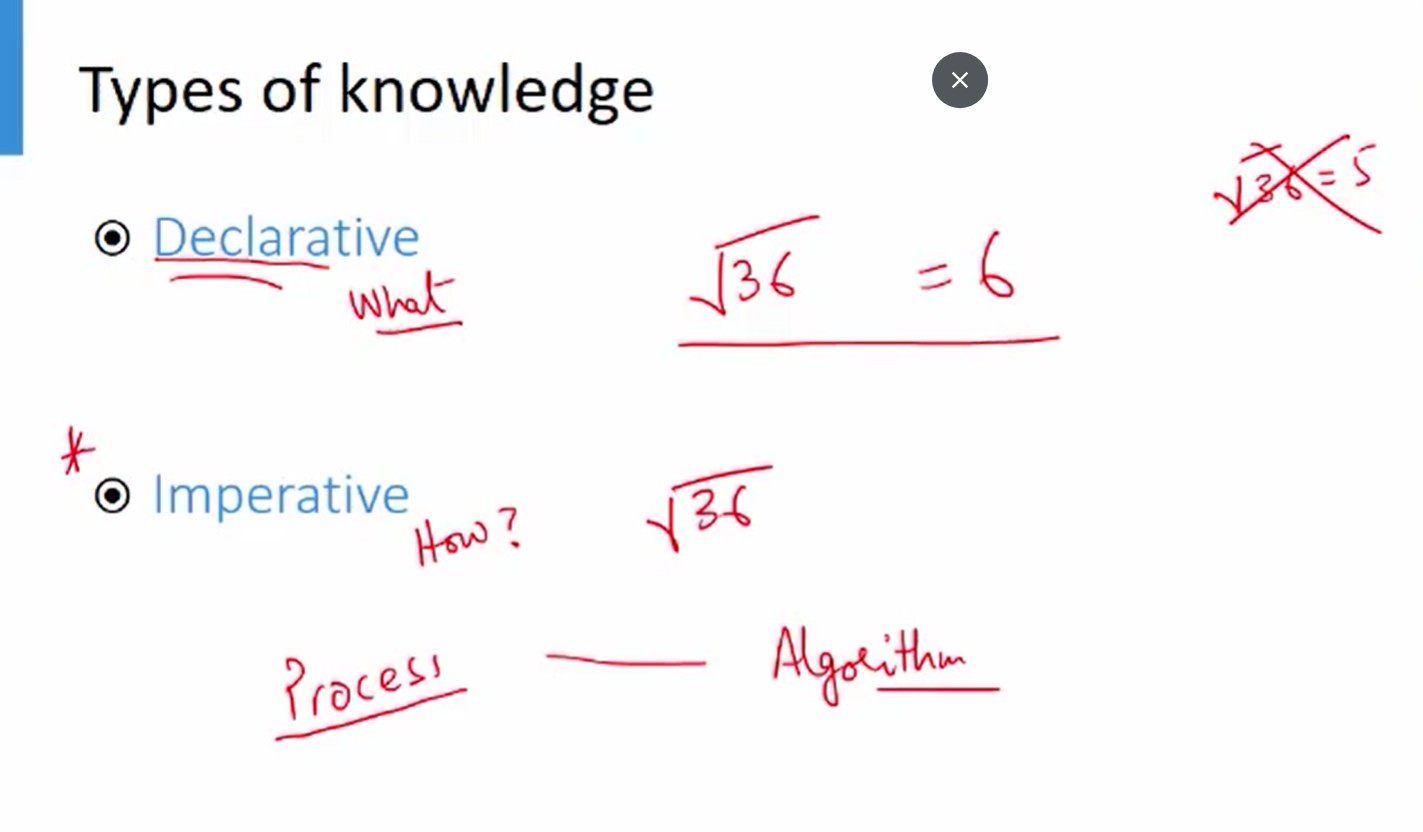 Types of knowledge
√36 = 5
Declarative
What
√36 = 6
* Imperative
How?
√36
Process — Algorithm